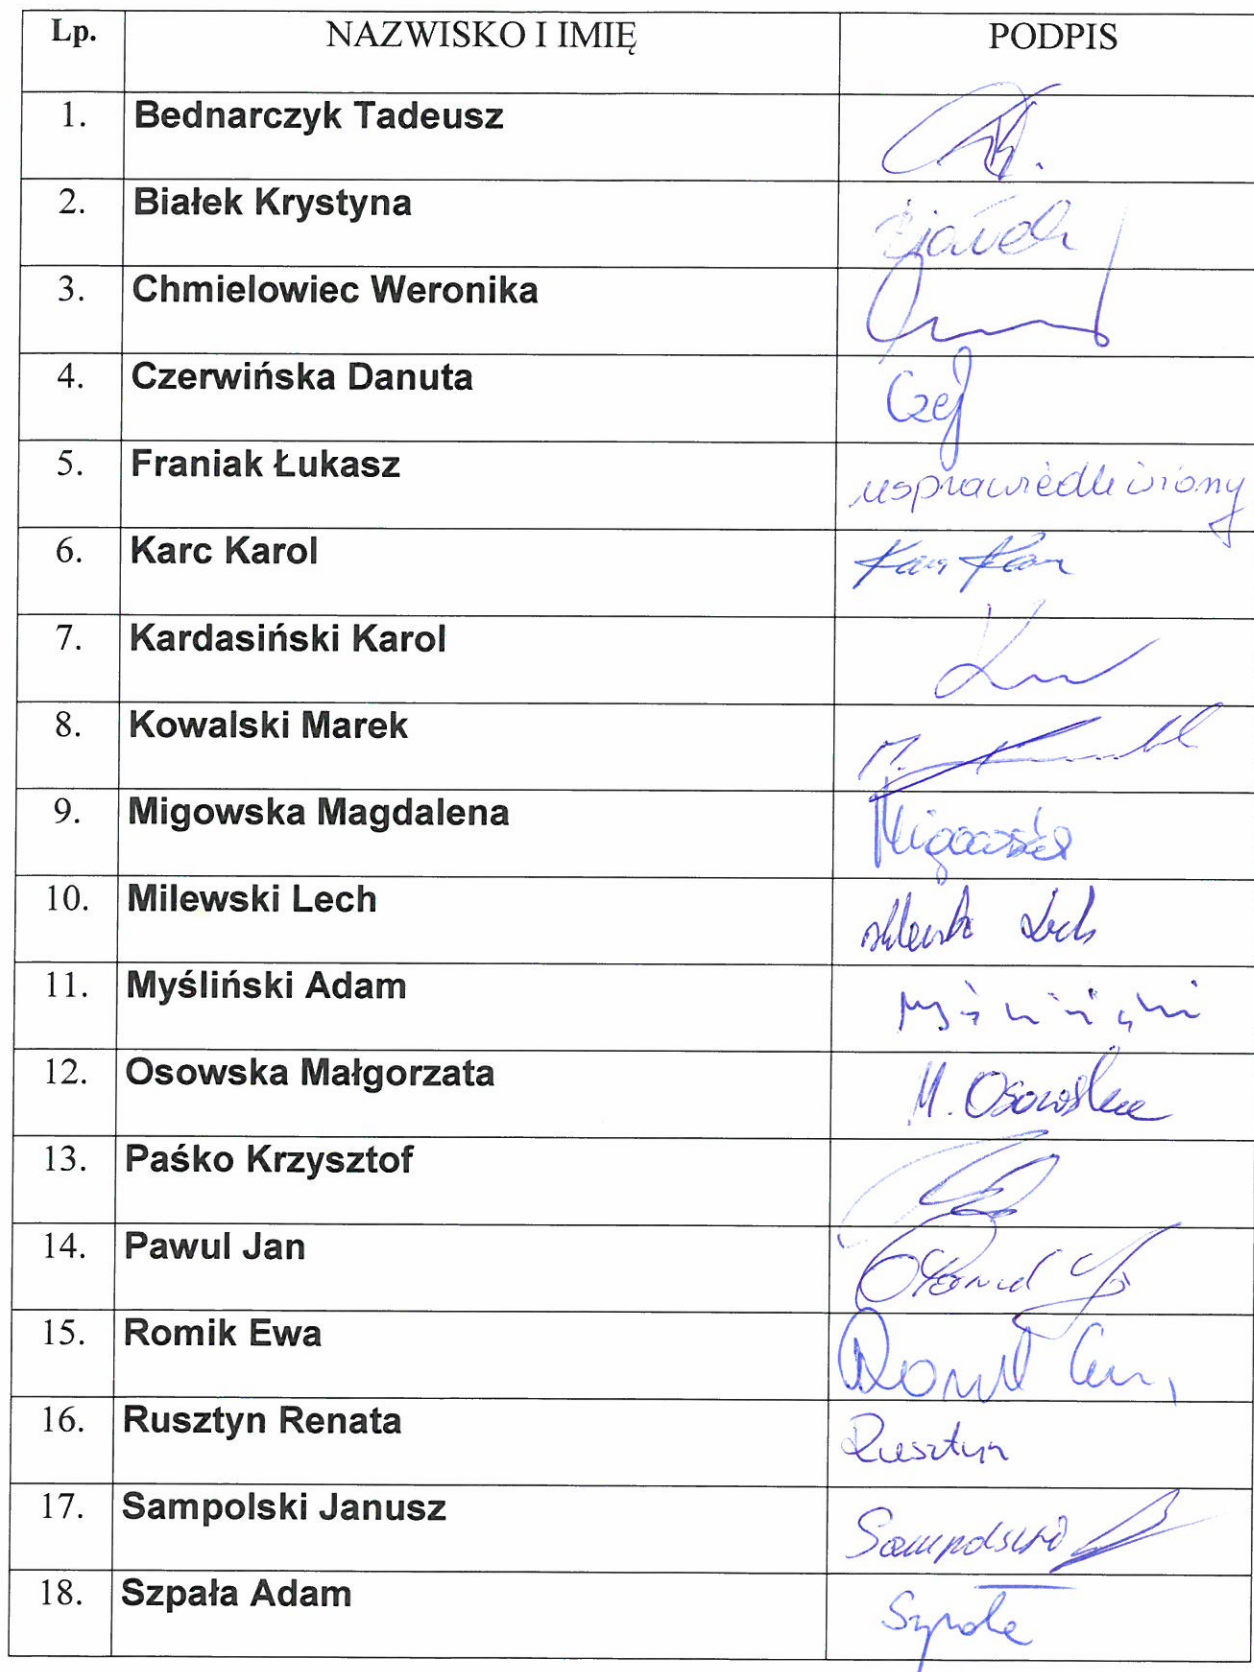 Lp. NAZWISKO I IMIĘ PODPIS
1. Bednarczyk Tadeusz
2. Białek Krystyna Białek
3. Chmielowiec Weronika
4. Czerwińska Danuta Czer
5. Franiak Łukasz usprawiedliwiony
6. Karc Karol Karc Karol
7. Kardasiński Karol
8. Kowalski Marek M. Kowalski
9. Migowska Magdalena Migowska
10. Milewski Lech Milewski Lech
11. Myśliński Adam Myśliński
12. Osowska Małgorzata M. Osowska
13. Paśko Krzysztof
14. Pawul Jan Pawul J
15. Romik Ewa Romik Ewa
16. Rusztyn Renata Rusztyn
17. Sampolski Janusz Sampolski
18. Szpała Adam Szpała